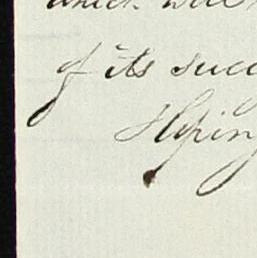 which will
of its succ
Hoping